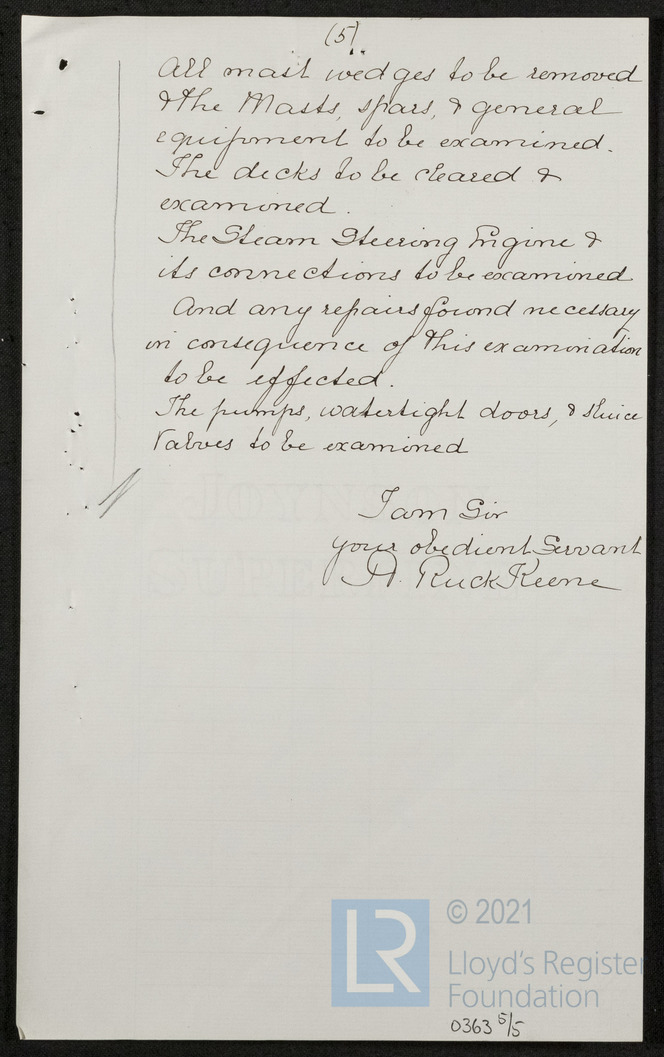 (5)
All mast wedges to be removed
& the Masts, spars, & general
equipment to be examined.
The decks to be cleared &
examined.
The Steam Steering Engine &
its connections to be examined
And any repairs found necessary
in consequence of this examination
to be effected.
The pumps, watertight doors, & sluice
Valves to be examined
I am Sir
your obedient Servant
A. Ruck Keene
LR
© 2021
Lloyd's Register
Foundation
0363 5/5